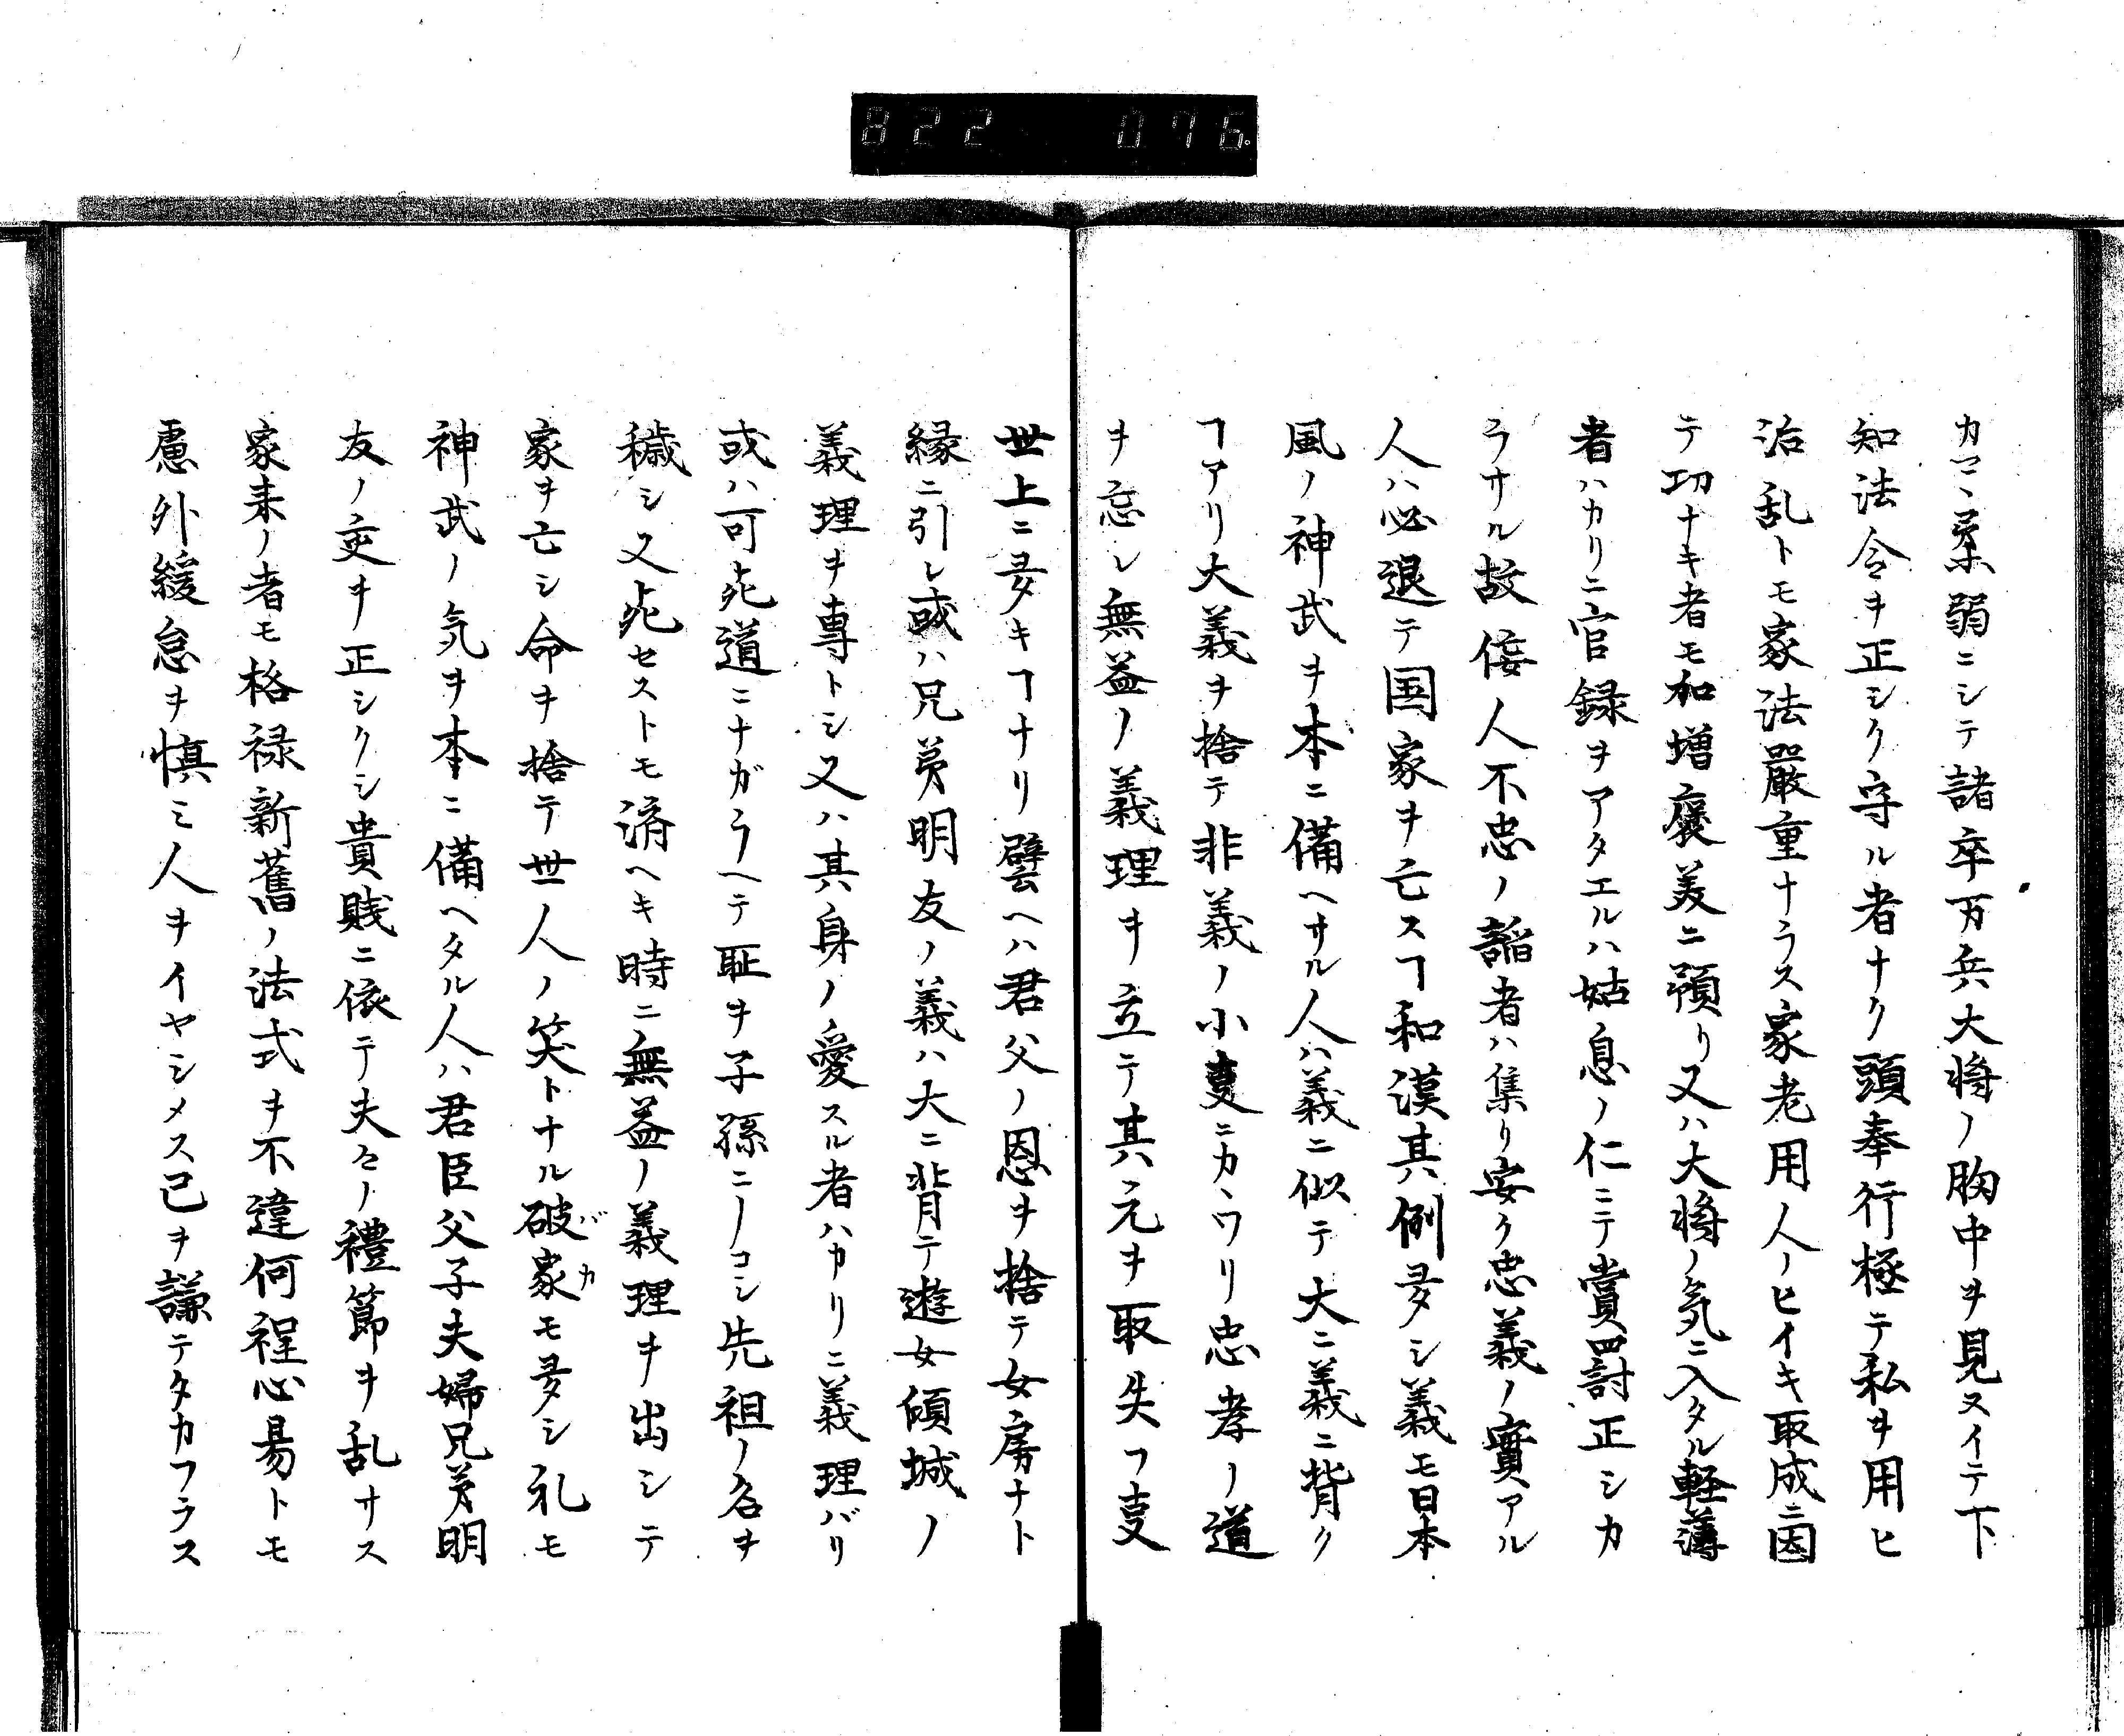 822 076
カマヽ柔弱ニシテ諸卒万兵大将ノ胸中ヲ見ヌイテ下
知法令ヲ正シク守ル者ナク頭奉行極テ私ヲ用ヒ
治乱トモ家法嚴重ナラス家老用人ノヒイキ取成ニ因
テ功ナキ者モ加増褒美ニ預リ又ハ大将ノ気ニ入タル軽薄
者ハカリニ官録ヲアタエルハ姑息ノ仁ニテ賞罸正シカ
ラサル故倿人不忠ノ謟者ハ集リ安ク忠義ノ實アル
人ハ必退テ国家ヲ亡スヿ和漢其例多シ義モ日本
風ノ神武ヲ本ニ備ヘサル人ハ義ニ似テ大ニ義ニ背ク
ヿアリ大義ヲ捨テ非義ノ小叓ニカヽワリ忠孝ノ道
ヲ忘レ無益ノ義理ヲ立テ其元ヲ取失フ叓
世上ニ多キヿナリ譬ヘハ君父ノ恩ヲ捨テ女房ナト
縁ニ引レ或ハ兄弟明友ノ義ハ大ニ背テ遊女傾城ノ
義理ヲ専トシ又ハ其身ノ愛スル者ハカリニ義理バリ
或ハ可死道ニナガラヘテ耻ヲ子孫ニノコシ先祖ノ名ヲ
穢シ又死セストモ済ヘキ時ニ無益ノ義理ヲ出シテ
家ヲ亡シ命ヲ捨テ世人ノ笑トナル破家バカモ多シ礼モ
神武ノ気ヲ本ニ備ヘタル人ハ君臣父子夫婦兄弟明
友ノ交ヲ正シクシ貴賎ニ依テ夫々ノ禮節ヲ乱サス
家来ノ者モ格禄新舊ノ法式ヲ不違何程心易トモ
慮外緩怠ヲ慎ミ人ヲイヤシメス己ヲ謙テタカフラス